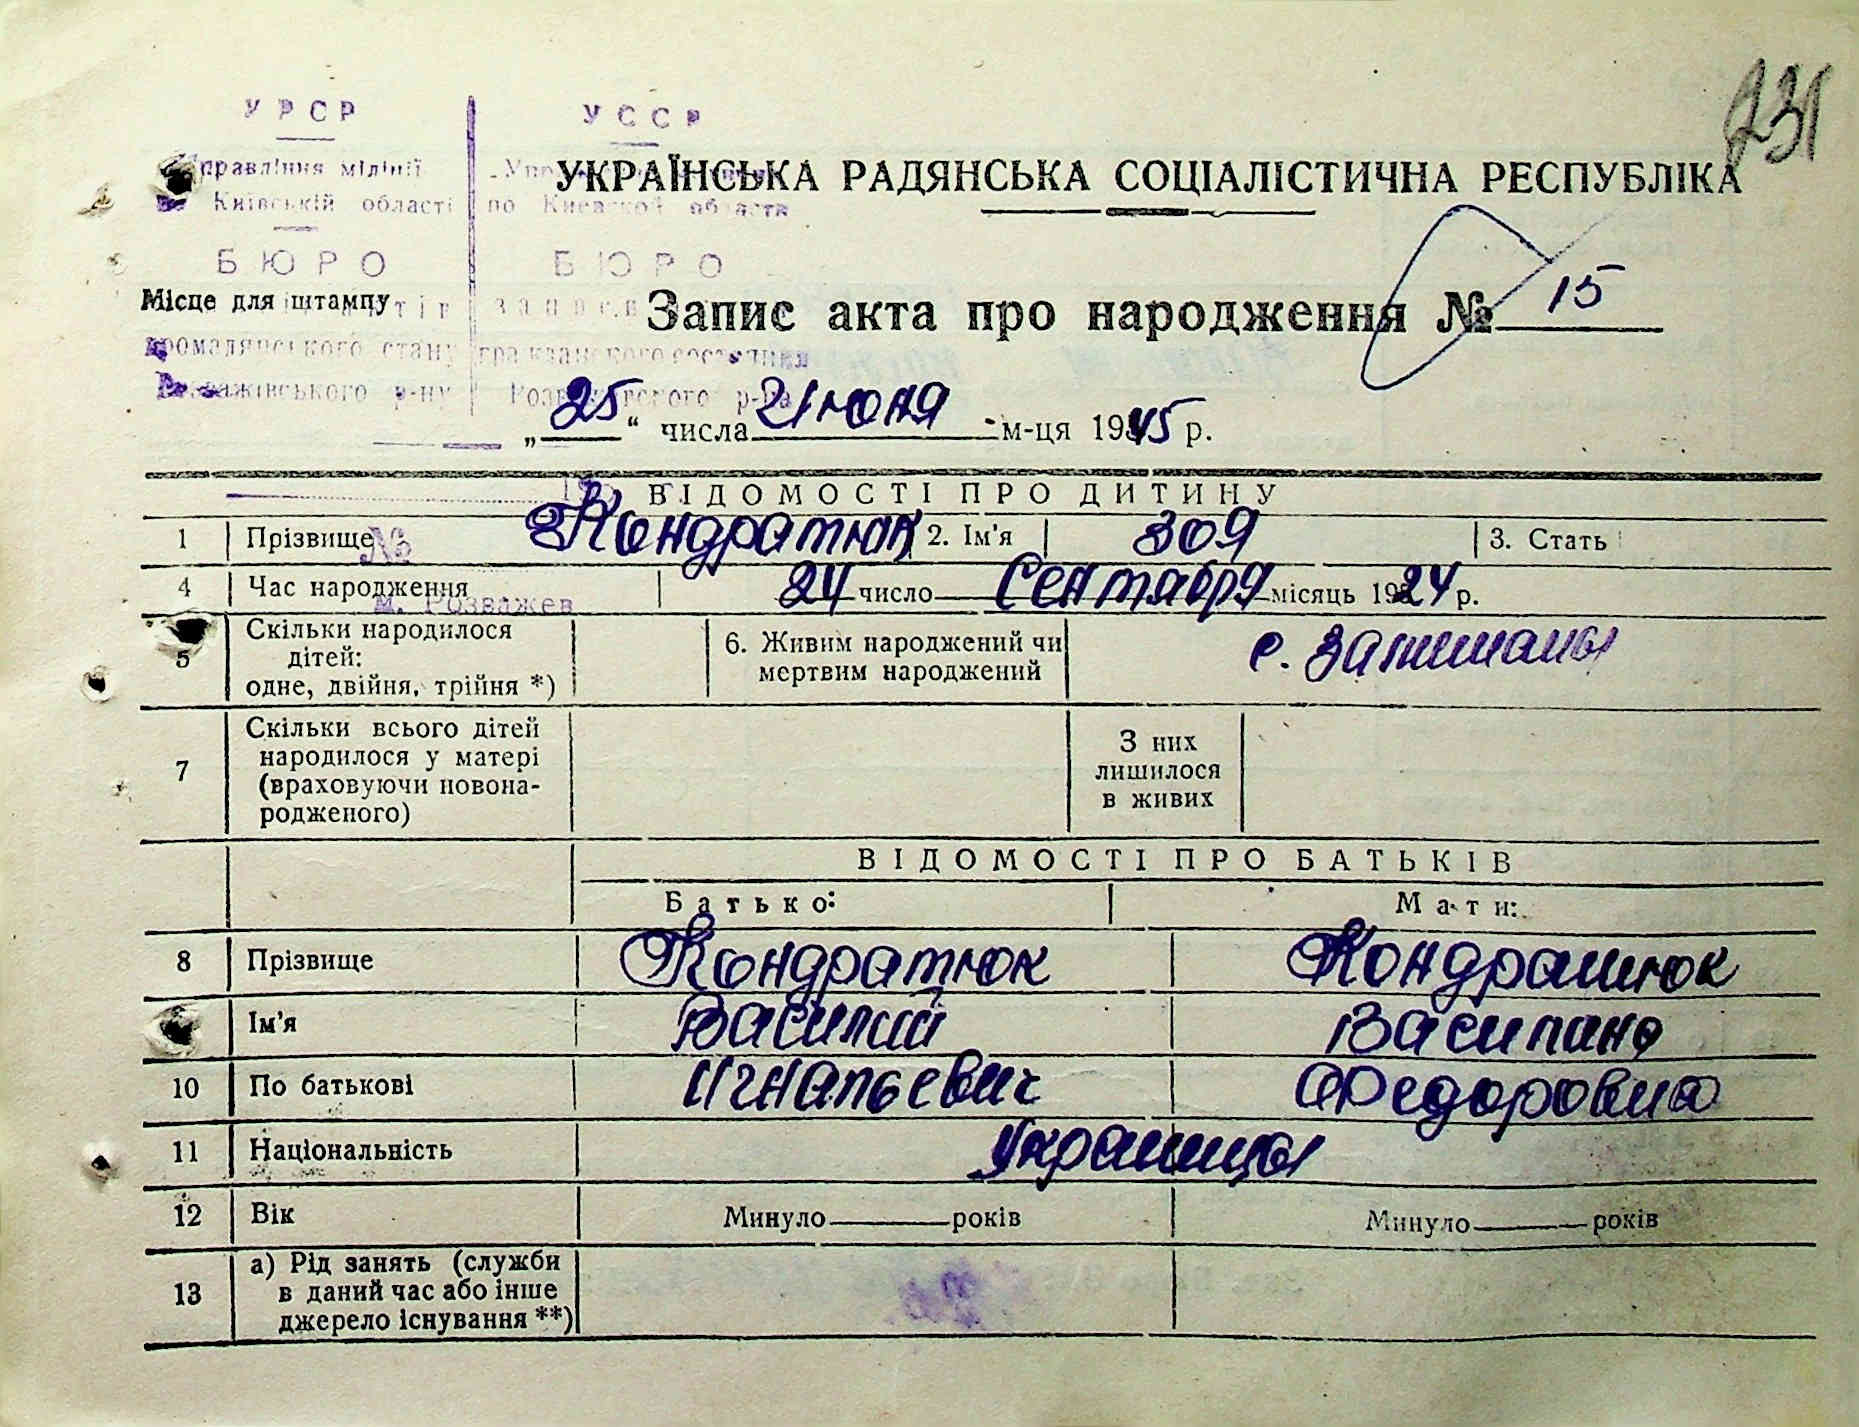 231
УРСР УССР
Управління міліції
Київській області по Киевской области
УКРАЇНСЬКА РАДЯНСЬКА СОЦІАЛІСТИЧНА РЕСПУБЛІКА
БЮРО БЮРО
Місце для штампу
Запис акта про народження № 15
громадянського стану гражданского состояния
Розважівського р-ну Розважевского р-на
„25“ числа июня м-ця 1945 р.
ВІДОМОСТІ ПРО ДИТИНУ
1 Прізвище Кондратюк 2. Ім'я Зоя 3. Стать
№
4 Час народження 24 число Сентября місяць 1924 р.
м. Розважев
5 Скільки народилося
дітей:
одне, двійня, трійня *)
6. Живим народжений чи
мертвим народжений
с.
7 Скільки всього дітей
народилося у матері
(враховуючи новона-
родженого)
З них
лишилося
в живих
ВІДОМОСТІ ПРО БАТЬКІВ
Батько: Мати:
8 Прізвище Кондратюк Кондратюк
Ім'я Василий Василина
10 По батькові Игнатьевич Федоровна
11 Національність Украинцы
12 Вік Минуло років Минуло років
13 а) Рід занять (служби
в даний час або інше
джерело існування **)